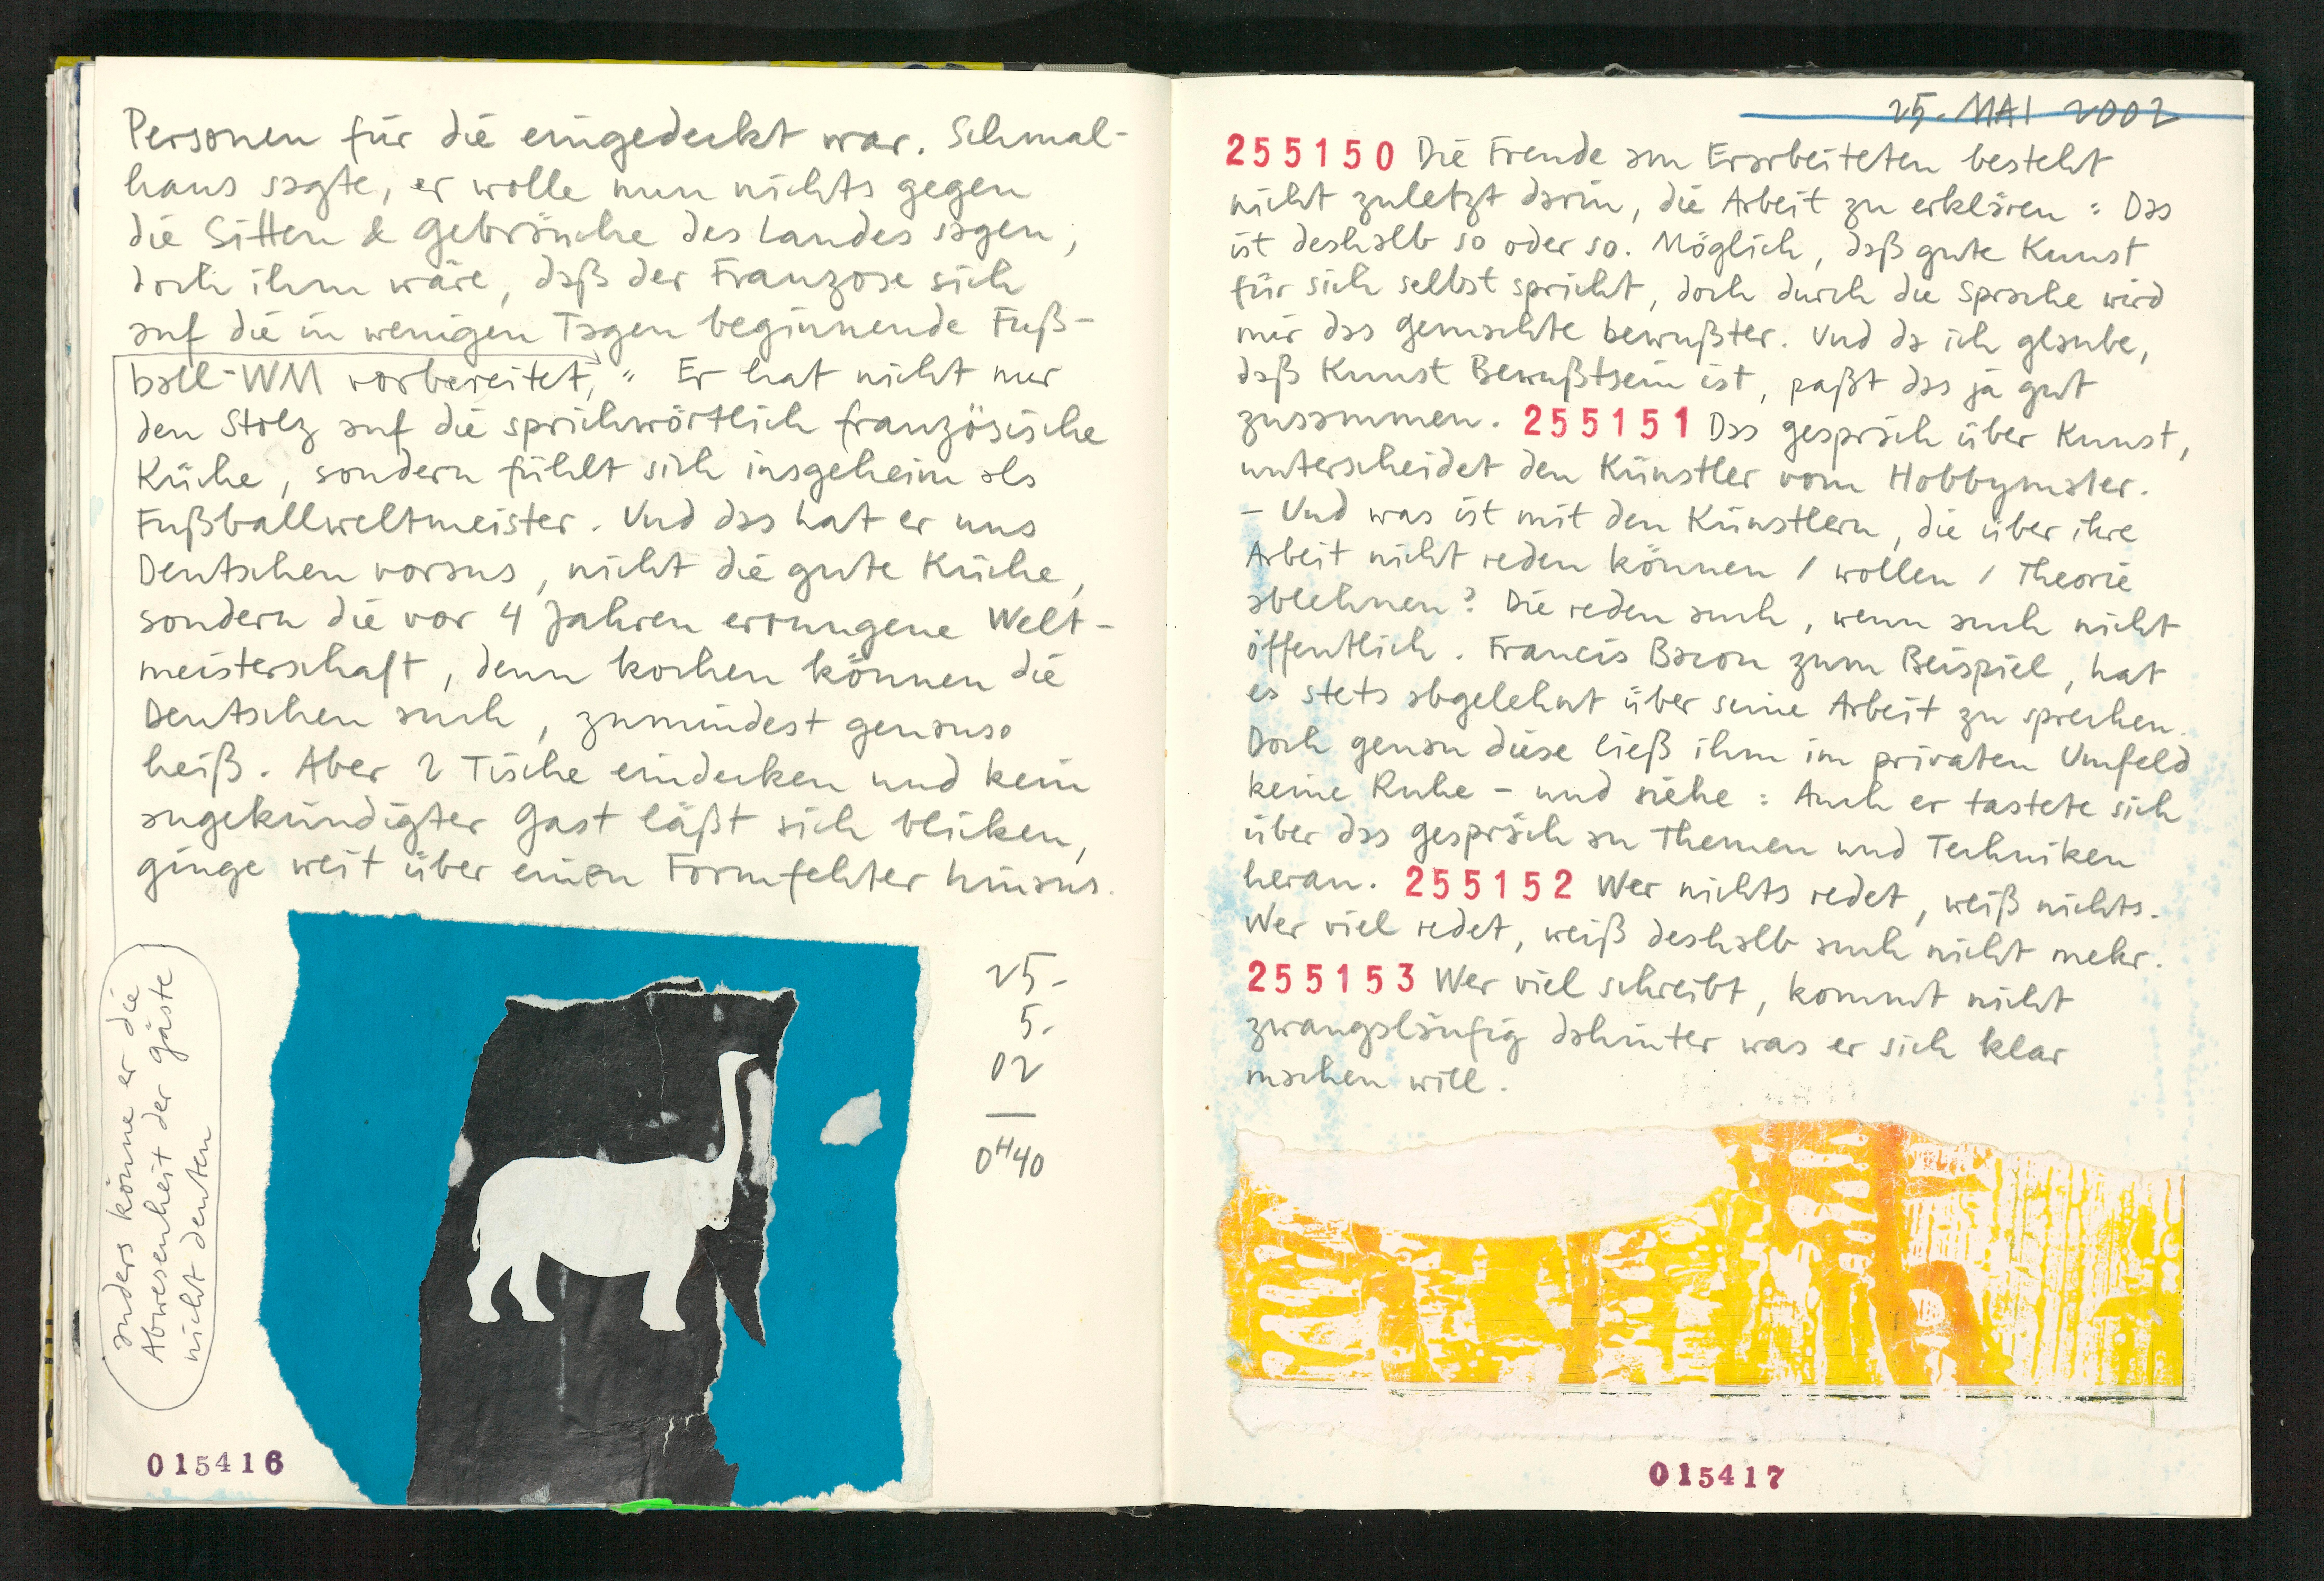 Personen für die eingedeckt war. Schmal-
haus sagte, er wolle nun nichts gegen
die Sitten & Gebräuche des Landes sagen,
doch ihm wäre, daß der Franzose sich
auf die in wenigen Tagen beginnende Fuß-
ball-WM vorbereitet, " Er hat nicht nur
den Stolz auf die sprichwörtlich französische
Küche, sondern fühlt sich insgeheim als
Fußballweltmeister. Und das hat er uns
Deutschen voraus, nicht die gute Küche,
sondern die vor 4 Jahren errungene Welt-
meisterschaft, denn kochen können die
Deutschen auch, zumindest genauso
heiß. Aber 2 Tische eindecken und kein
angekündigter Gast läßt sich blicken,
ginge weit über einen Formfehler hinaus.
anders könne er die
Abwesenheit der Gäste
nicht deuten
25.
5.
02
0H40
015416
25. MAI 2002
255150 Die Freude am Erarbeiteten besteht
nicht zuletzt darin, die Arbeit zu erklären: Das
ist deshalb so oder so. Möglich, daß gute Kunst
für sich selbst spricht, doch durch die Sprache wird
mir das Gemachte bewußter. Und da ich glaube,
daß Kunst Bewußtsein ist, paßt das ja gut
zusammen. 255151 Das Gespräch über Kunst,
unterscheidet den Künstler vom Hobbymaler.
- Und was ist mit den Künstlern, die über ihre
Arbeit nicht reden können / wollen / Theorie
ablehnen? Die reden auch, wenn auch nicht
öffentlich. Francis Bacon zum Beispiel, hat
es stets abgelehnt über seine Arbeit zu sprechen.
Doch genau diese ließ ihm im privaten Umfeld
keine Ruhe - und siehe: Auch er tastete sich
über das Gespräch an Themen und Techniken
heran. 255152 Wer nichts redet, weiß nichts.
Wer viel redet, weiß deshalb auch nicht mehr.
255153 Wer viel schreibt, kommt nicht
zwangsläufig dahinter was er sich klar
machen will.
015417